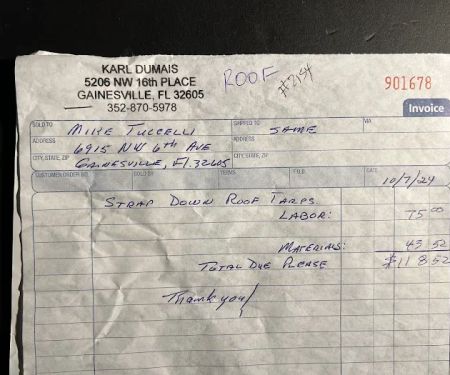 KARL DUMAIS
5206 NW 16th PLACE
GAINESVILLE, FL 32605
352-870-5978
ROOF
#2154
901678
Invoice
SOLD TO MIKE TUCCELLI
SHIPPED TO SAME
VIA
ADDRESS 6915 NW 6th AVE
ADDRESS
CITY, STATE, ZIP GAINESVILLE, Fl. 32605
CITY, STATE, ZIP
CUSTOMER ORDER NO. SOLD BY TERMS F.O.B. DATE 10/7/24
STRAP DOWN ROOF TARPS
LABOR: 75 00
MATERIALS: 43 52
TOTAL DUE PLEASE $118 52
Thank you!